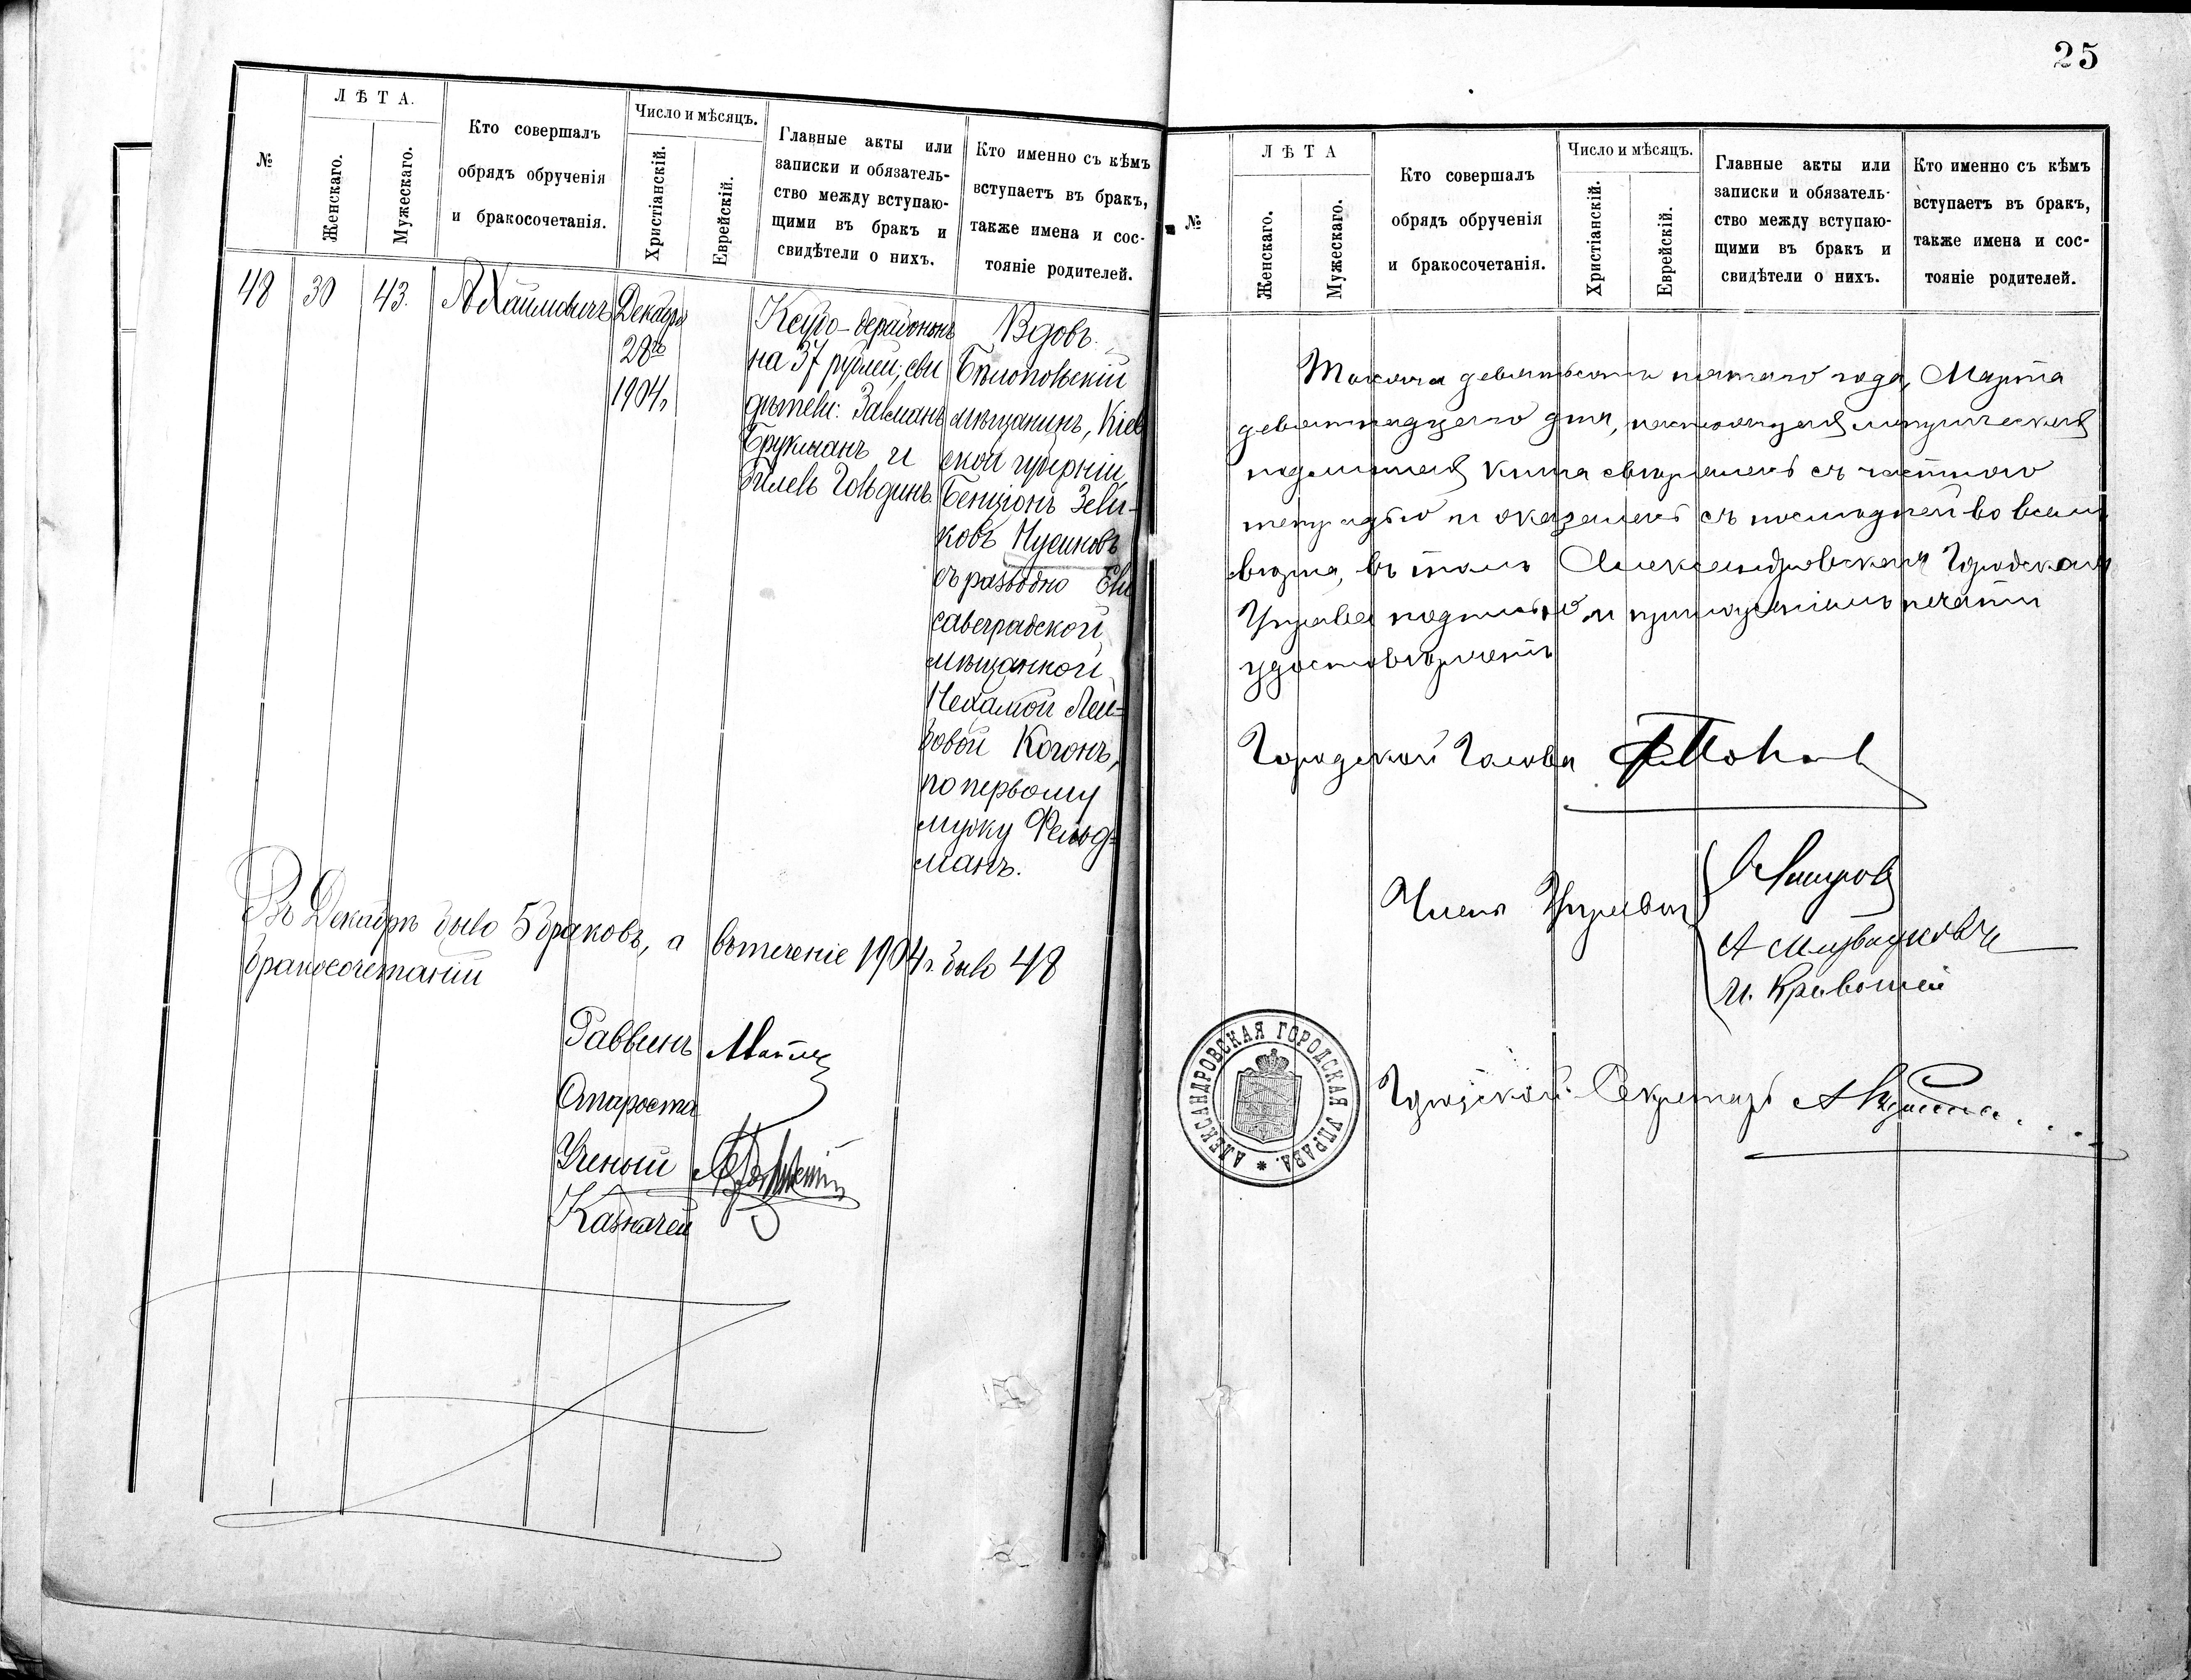 25
№
ЛѢТА.
Женскаго.
Мужескаго.
Кто совершалъ
обрядъ обрученія
и бракосочетанія.
Число и мѣсяцъ.
Христіанскій.
Еврейскій.
Главные акты или
записки и обязатель-
ство между вступаю-
щими въ бракъ и
свидѣтели о нихъ.
Кто именно съ кѣмъ
вступаетъ въ бракъ,
также имена и сос-
тояніе родителей.
48
30
43.
А Хаимовичъ
Декабря
28го
1904г
на 37 рублей; сви
дѣтели: Залманъ
Брукманъ и
Гольдинъ.
Вдовъ.
мѣщанинъ, Кіев
ской губерніи,
Бенціонъ Зели-
ковъ Нусиновъ
съ разводно Ели
саветградской
мѣщанкой
Нехамой Лей-
бовой Когонъ,
по первому
мужу Фельд-
манъ.
Въ Декабрѣ было 5 браковъ, а втеченіе 1904г. было 48
бракосочетаній
Раввинъ
Староста
Ученый
Казначей
№
ЛѢТА
Женскаго.
Мужескаго.
Кто совершалъ
обрядъ обрученія
и бракосочетанія.
Число и мѣсяцъ.
Христіанскій.
Еврейскій.
Главные акты или
записки и обязатель-
ство между вступаю-
щими въ бракъ и
свидѣтели о нихъ.
Кто именно съ кѣмъ
вступаетъ въ бракъ,
также имена и сос-
тояніе родителей.
Тысяча девятьсотъ пятаго года, Марта
девятнадцатого дня, настоящая метрическая
подлинная книга свѣрялась съ частною
тетрадью и оказалась съ последней во всемъ
вѣрна, въ томъ Александровская Городская
Управа подписью и приложеніемъ печати
удостовѣряетъ
Городской Голова
Члены Управы
И. Кривошей
Городской Секретарь
АЛЕКСАНДРОВСКАЯ ГОРОДСКАЯ УПРАВА. *